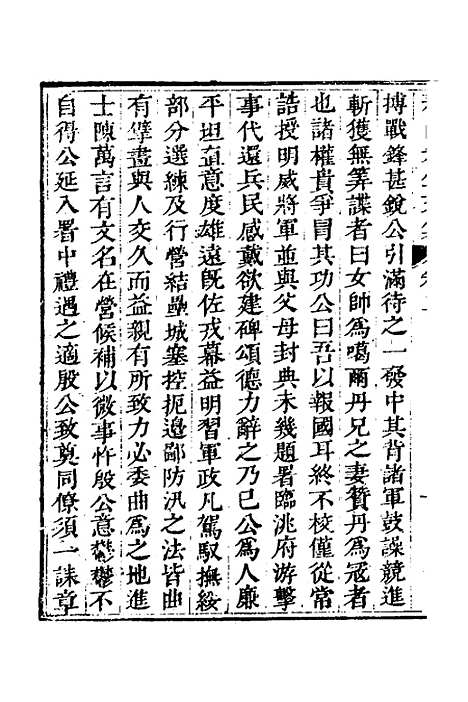 搏戰鋒甚銳公引滿待之一發中其背諸軍鼓譟競進
斬獲無筭諜者曰女帥為噶爾丹兄之妻贊丹為冦者
也諸權貴爭冒其功公曰吾以報國耳終不校僅從常
誥授明威將軍並與父母封典未幾題署臨洮府游擊
事代還兵民感戴欲建碑頌德力辭之乃已公為人廉
平坦直意度雄遠旣佐戎幕益明習軍政凡駕馭撫綏
部分選練及行營結壘城塞控扼邉鄙防汛之法皆曲
有擘畫與人交久而益親有所致力必委曲為之地進
士陳萬言有文名在營候補以微事忤殷公意鬱鬱不
自得公延入署中禮遇之適殷公致奠同僚須一誄章